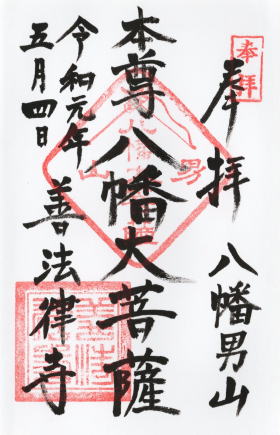 奉拝
奉拝
八幡男山
本尊八幡大菩薩
令和元年
五月四日
善法律寺
男
山